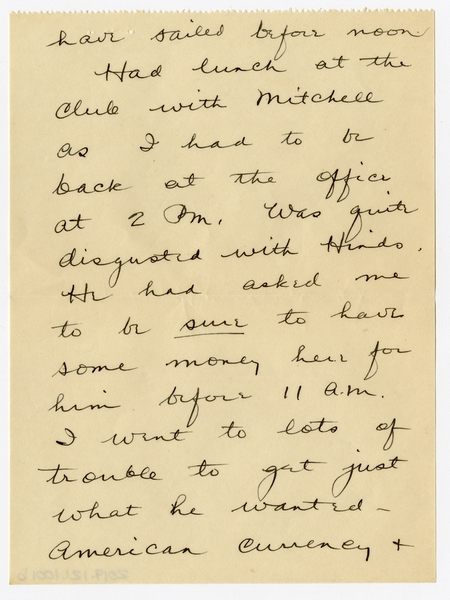 have sailed before noon.
Had lunch at the
Club with Mitchell
as I had to be
back at the office
at 2 Pm. Was quite
disgusted with Hinds.
He had asked me
to be sure to have
some money here for
him before 11 a.m.
I went to lots of
trouble to get just
what he wanted -
American currency +